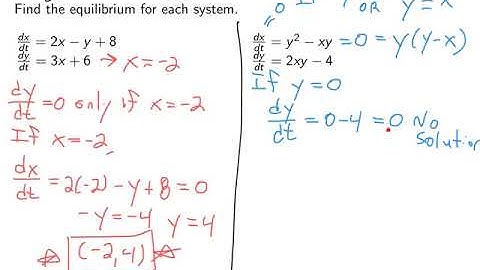 Find the equilibrium for each system.
dx/dt = 2x − y + 8
dy/dt = 3x + 6 → x = -2
dy/dt = 0 only if x = -2
If x = -2
dx/dt = 2(-2) - y + 8 = 0
-y = -4 y = 4
(-2, 4)
0 If y OR y = x
dx/dt = y² − xy = 0 = y(y-x)
dy/dt = 2xy − 4
If y = 0
dy/dt = 0 - 4 = 0 No
solution